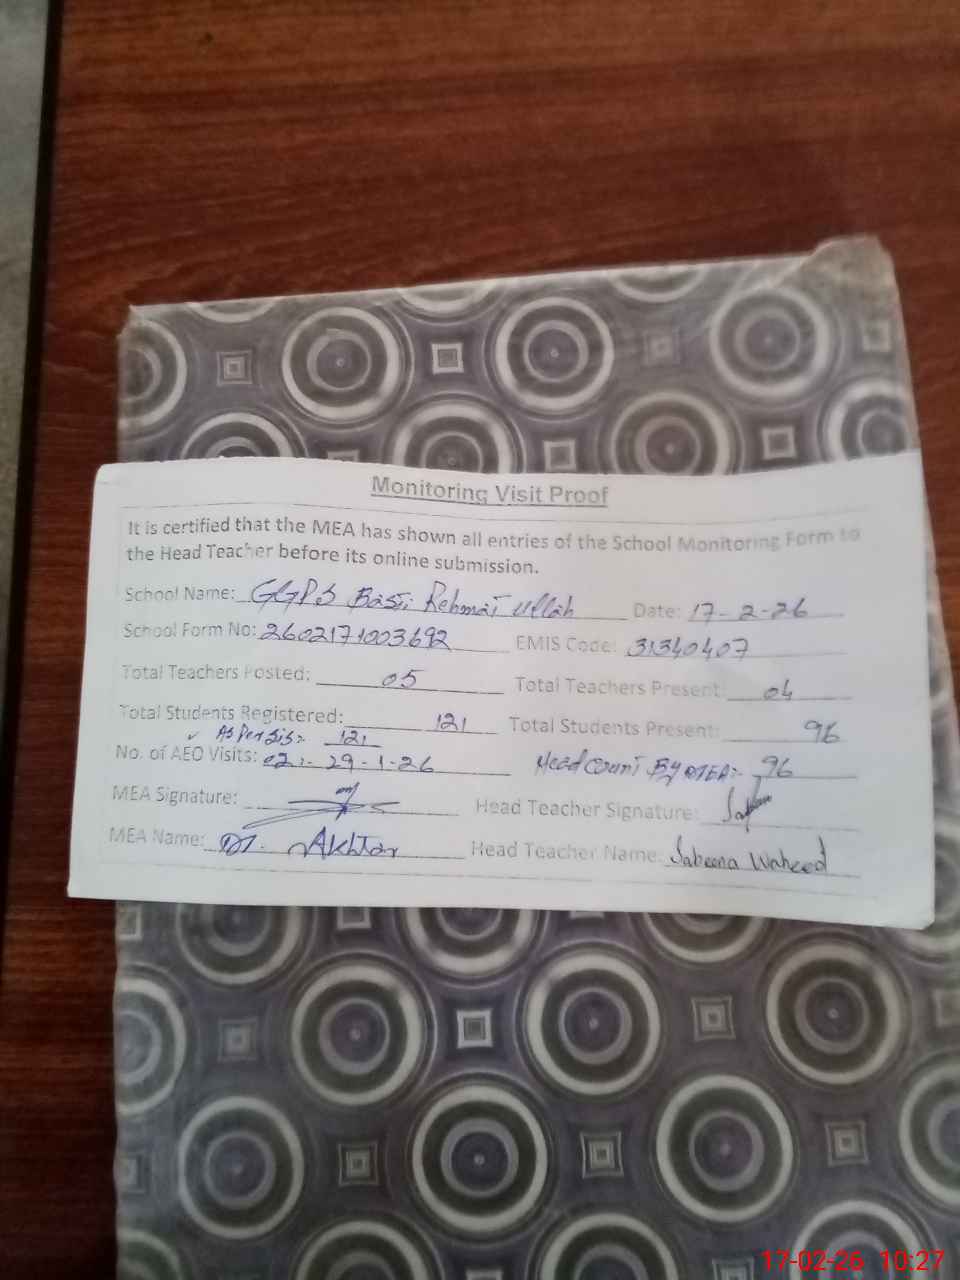 Monitoring Visit Proof
It is certified that the MEA has shown all entries of the School Monitoring Form to
the Head Teacher before its online submission.
School Name: GGPS Basti Rehmat Ullah Date: 17-2-26
School Form No: 2602171003692 EMIS Code: 31340407
Total Teachers Posted: 05 Total Teachers Present: 04
Total Students Registered: 121 Total Students Present: 96
✓ As Per Sis:- 121
No. of AEO Visits: 02:- 29-1-26 Head count By MEA:- 96
MEA Signature: Head Teacher Signature:
MEA Name: Akhtar Head Teacher Name: Sabeena Waheed
17-02-26 10:27